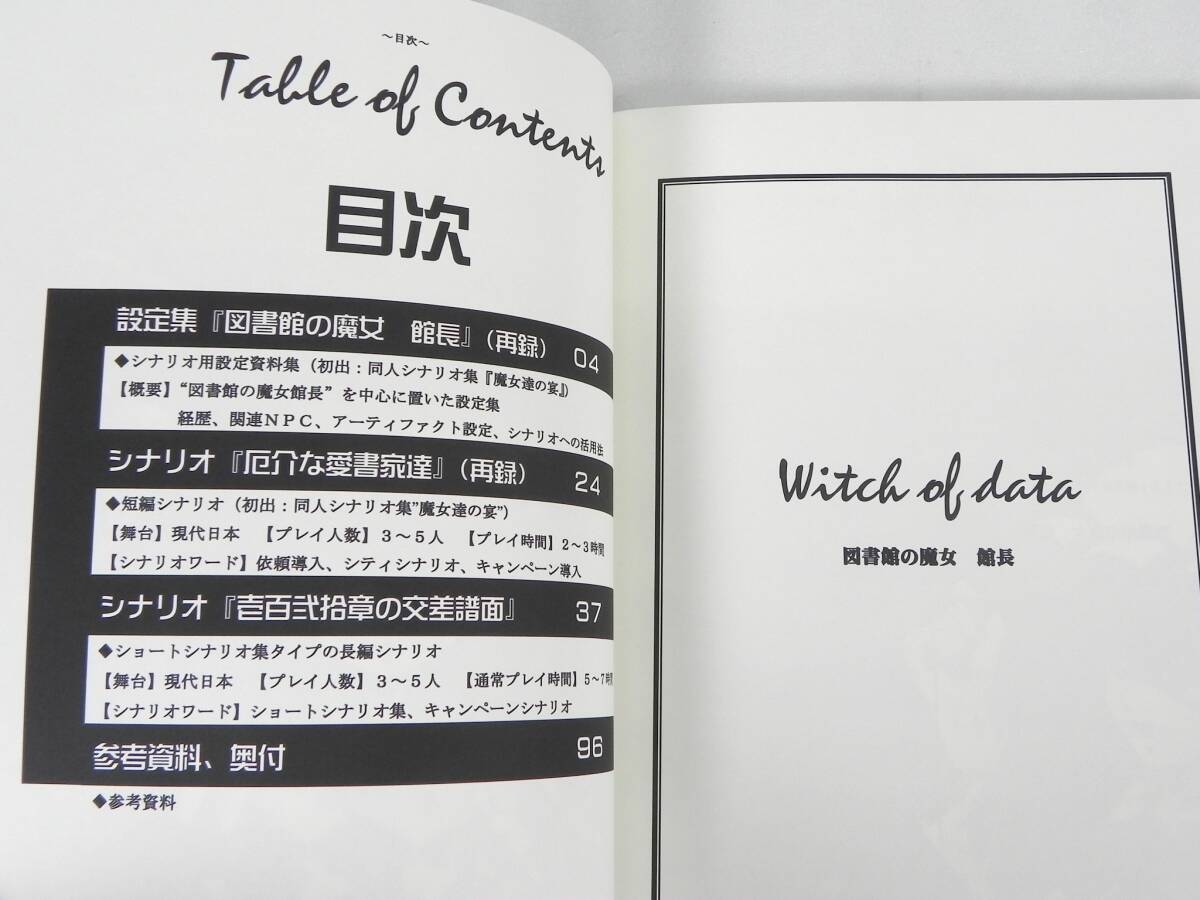 ～目次～
Table of Contents
目次
設定集『図書館の魔女　館長』（再録）　04
◆シナリオ用設定資料集（初出：同人シナリオ集『魔女達の宴』）
【概要】“図書館の魔女館長”を中心に置いた設定集
経歴、関連ＮＰＣ、アーティファクト設定、シナリオへの活用法
シナリオ『厄介な愛書家達』（再録）　24
◆短編シナリオ（初出：同人シナリオ集”魔女達の宴”）
【舞台】現代日本　【プレイ人数】３～５人　【プレイ時間】２～３時間
【シナリオワード】依頼導入、シティシナリオ、キャンペーン導入
シナリオ『壱百弐拾章の交差譜面』　37
◆ショートシナリオ集タイプの長編シナリオ
【舞台】現代日本　【プレイ人数】３～５人　【通常プレイ時間】５～７時間
【シナリオワード】ショートシナリオ集、キャンペーンシナリオ
参考資料、奥付　96
◆参考資料
Witch of data
図書館の魔女　館長